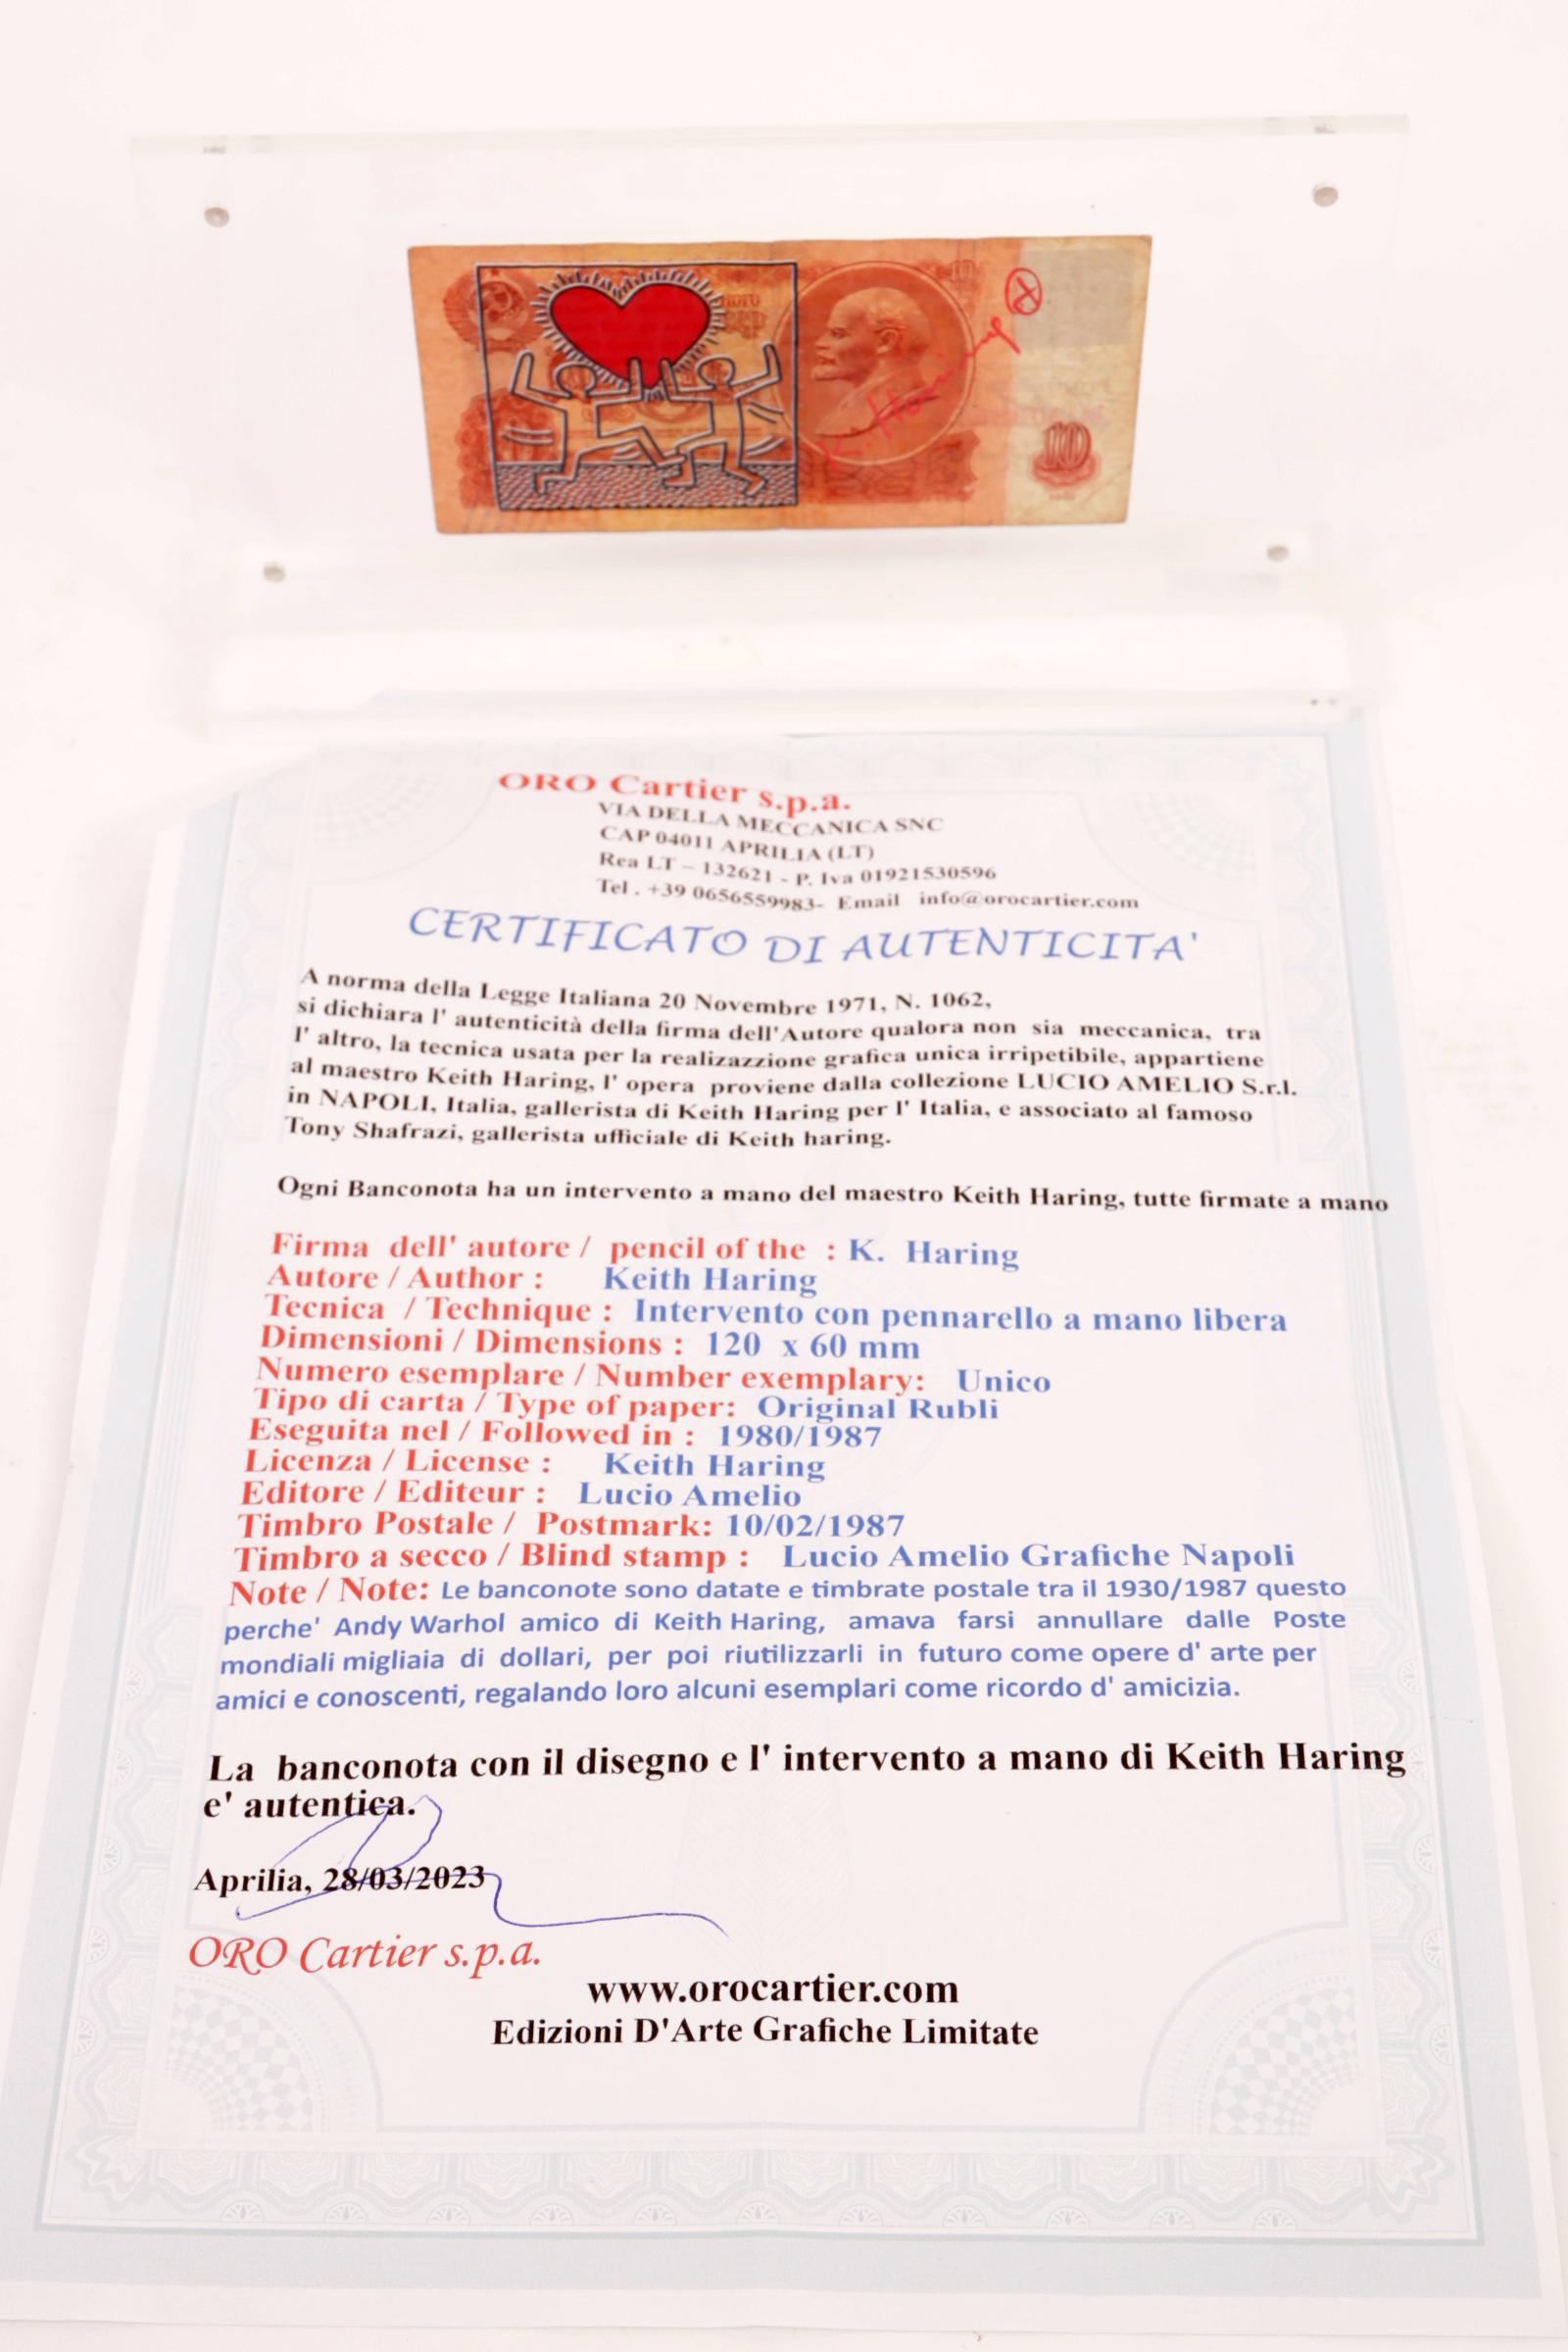 K. Haring
10
ORO Cartier s.p.a.
VIA DELLA MECCANICA SNC
CAP 04011 APRILIA (LT)
Rea LT – 132621 - P. Iva 01921530596
Tel . +39 0656559983- Email info@orocartier.com
CERTIFICATO DI AUTENTICITA'
A norma della Legge Italiana 20 Novembre 1971, N. 1062,
si dichiara l' autenticità della firma dell'Autore qualora non sia meccanica, tra
l' altro, la tecnica usata per la realizazzione grafica unica irripetibile, appartiene
al maestro Keith Haring, l' opera proviene dalla collezione LUCIO AMELIO S.r.l.
in NAPOLI, Italia, gallerista di Keith Haring per l' Italia, e associato al famoso
Tony Shafrazi, gallerista ufficiale di Keith haring.
Ogni Banconota ha un intervento a mano del maestro Keith Haring, tutte firmate a mano
Firma dell' autore / pencil of the : K. Haring
Autore / Author : Keith Haring
Tecnica / Technique : Intervento con pennarello a mano libera
Dimensioni / Dimensions : 120 x 60 mm
Numero esemplare / Number exemplary: Unico
Tipo di carta / Type of paper: Original Rubli
Eseguita nel / Followed in : 1980/1987
Licenza / License : Keith Haring
Editore / Editeur : Lucio Amelio
Timbro Postale / Postmark: 10/02/1987
Timbro a secco / Blind stamp : Lucio Amelio Grafiche Napoli
Note / Note: Le banconote sono datate e timbrate postale tra il 1930/1987 questo
perche' Andy Warhol amico di Keith Haring, amava farsi annullare dalle Poste
mondiali migliaia di dollari, per poi riutilizzarli in futuro come opere d' arte per
amici e conoscenti, regalando loro alcuni esemplari come ricordo d' amicizia.
La banconota con il disegno e l' intervento a mano di Keith Haring
e' autentica.
Aprilia, 28/03/2023
ORO Cartier s.p.a.
www.orocartier.com
Edizioni D'Arte Grafiche Limitate